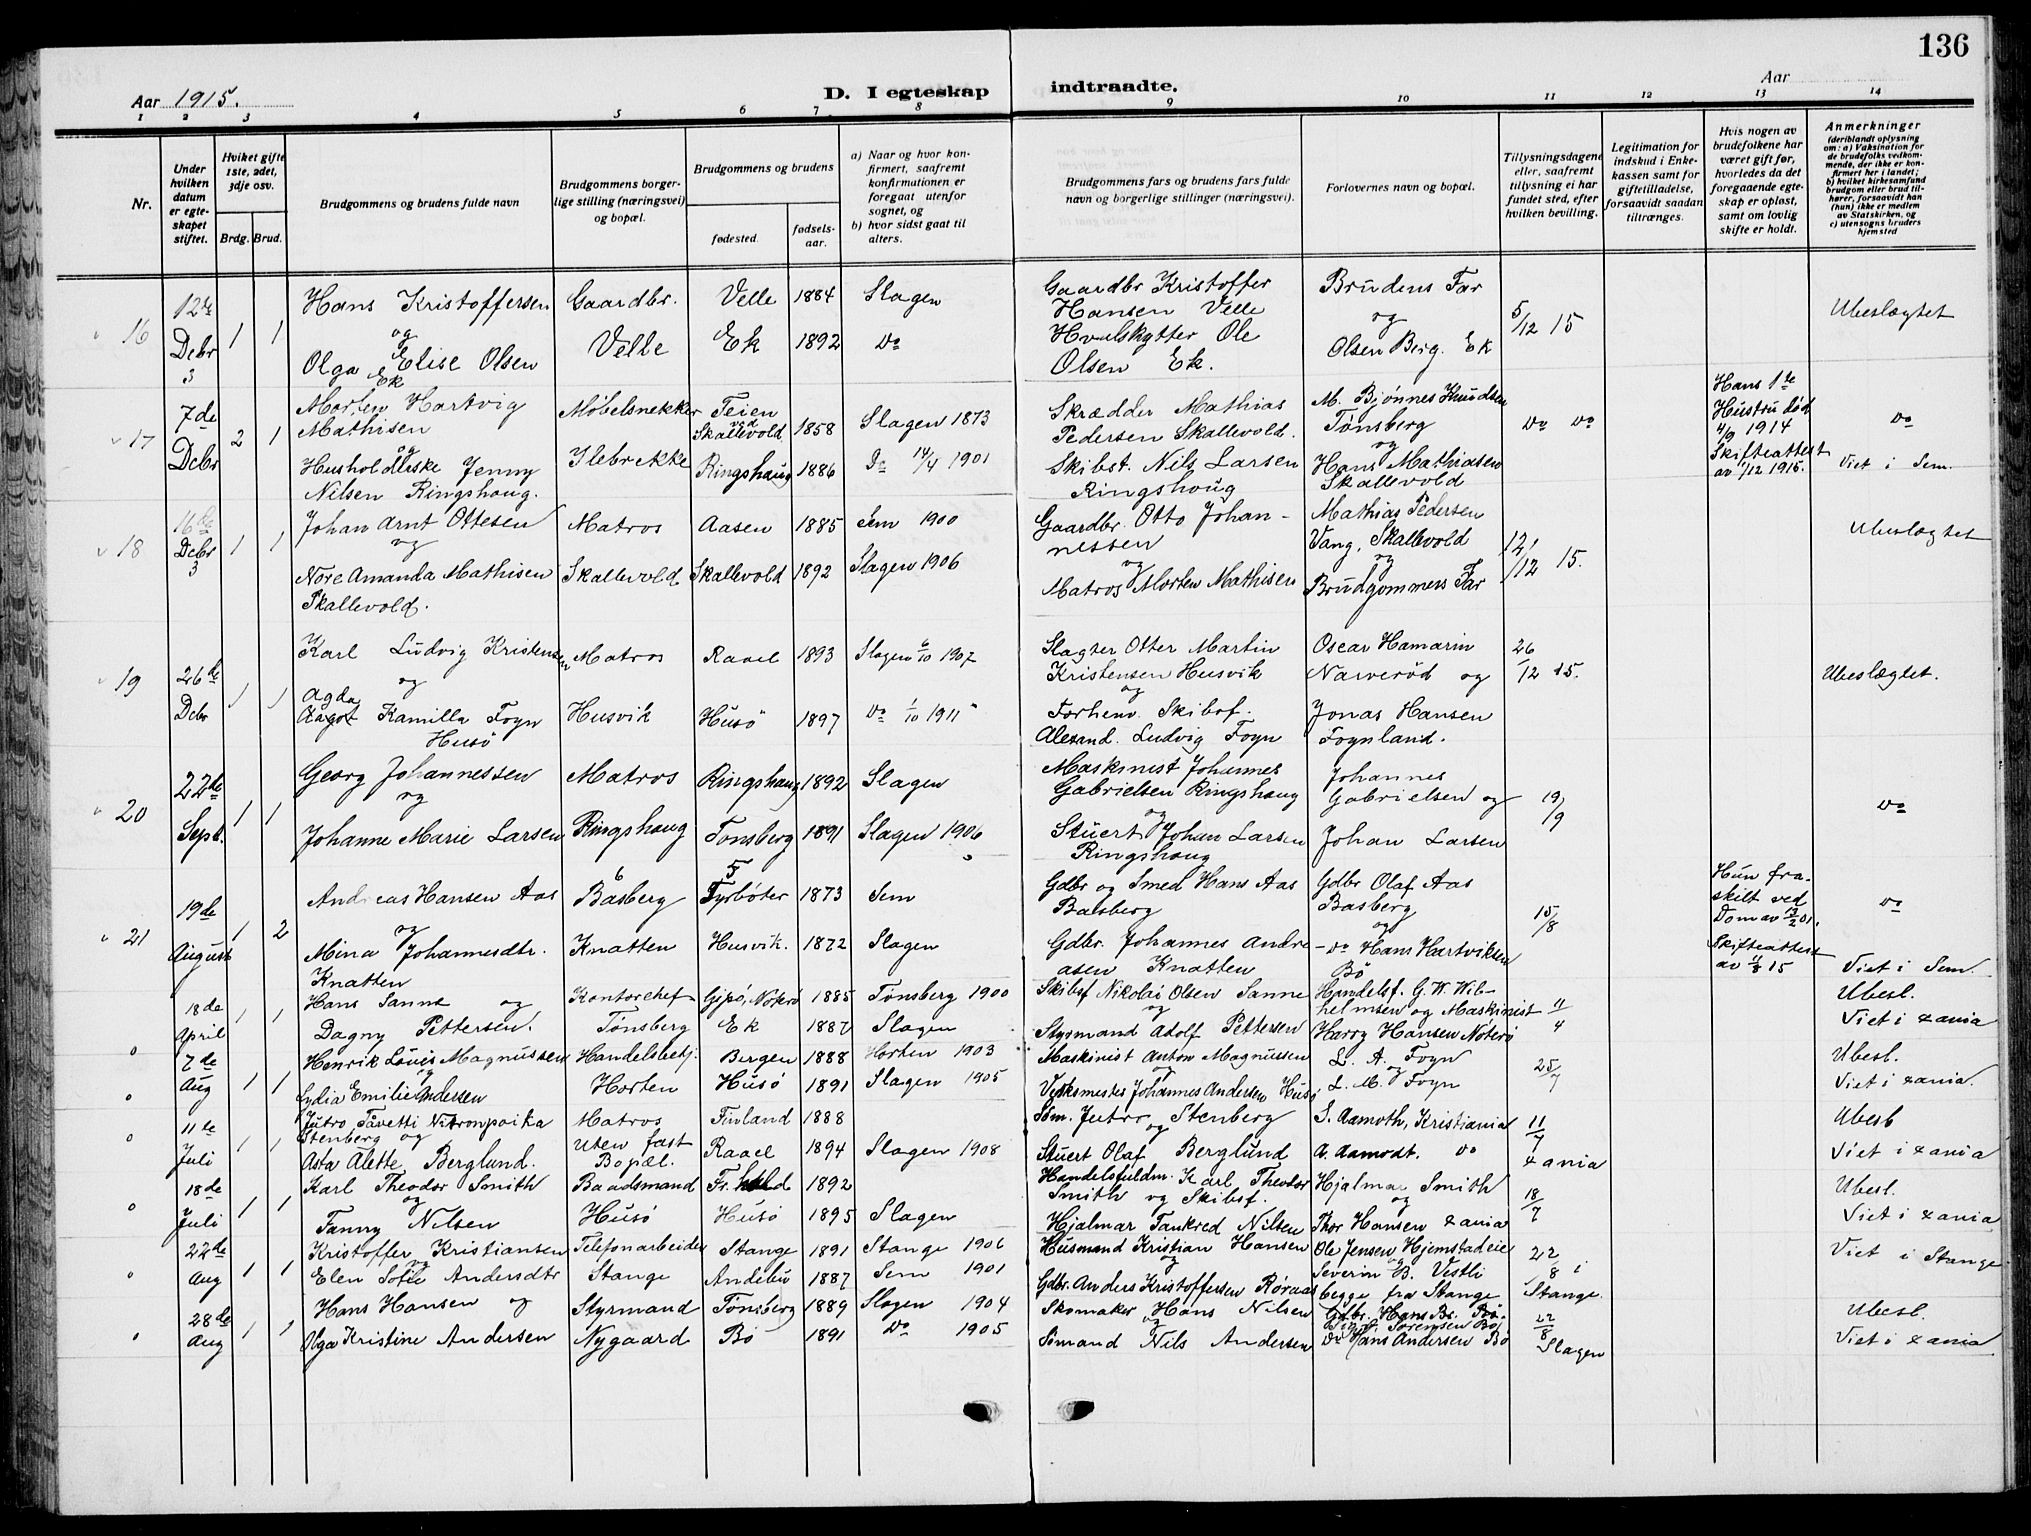 136
Aar 1915.
D. I egteskap indtraadte.
Aar
1 2 3 4 5 6 7 8 9 10 11 12 13 14
Nr.
Under hvilken datum er egteskapet stiftet.
Hviket gifte 1ste, 2det, 3dje osv.
Brdg. Brud.
Brudgommens og brudens fulde navn
Brudgommens borgerlige stilling (næringsvei) og bopæl.
Brudgommens og brudens
fødested. fødsels-aar.
a) Naar og hvor konfirmert, saafremt konfirmationen er foregaat utenfor sognet, og
b) hvor sidst gaat til alters.
Brudgommens fars og brudens fars fulde navn og borgerlige stillinger (næringsvei).
Forlovernes navn og bopæl.
Tillysningsdagene eller, saafremt tillysning ei har fundet sted, efter hvilken bevilling.
Legitimation for indskud i Enkekassen samt for giftetilladelse, forsaavidt saadan tiltrænges.
Hvis nogen av brudefolkene har været gift før, hvorledes da det foregaaende egteskap er opløst, samt om lovlig skifte er holdt.
Anmerkninger (deriblandt oplysning om: a) Vaksination for de brudefolks vedkommende, der ikke er konfirmert her i landet; b) hvilket kirkesamfund brudgom eller brud tilhører, forsaavidt han (hun) ikke er medlem av Statskirken, og c) utensogns bruders hjemsted
16 12te Debr 1 1 Hans Kristoffersen Gaardbr. Velle 1884 Slagen Gaardbr Kristoffer Hansen Velle Brudens Far 5/12 15 Ubeslægtet
og Olga Elise Olsen Ek Velle Ek 1892 do Hvalskytter Ole Olsen Ek. og Olsen Berg. Ek
17 7de Debr 2 1 Morten Hartvig Mathisen Møbelsnekker Teien ved Skallevold 1858 Slagen 1873 Skrædder Mathias Pedersen Skallevold. M. Bjønnes Knudsen Tønsberg do do Hans 1ste Hustru død 4/9 1914 do
og Husholderske Jenny Nilsen Ringshoug. Ilebrekke Ringshaug 1886 do 14/4 1901 Skibst. Nils Larsen Ringshoug og Hans Mathiasen Skallevold Skifteattest av 1/12 1915. Viet i Sem.
18 16de Debr 1 1 Johan Arnt Ottesen Matros Aasen 1885 Sem 1900 Gaardbr. Otto Johannessen Mathias Pedersen Vang, Skallevold 12/12 15. Ubeslægtet
og Nore Amanda Mathisen Skallevold. Skallevold Skallevold 1892 Slagen 1906 og Matros Morten Mathisen og Brudgommens Far
19 26de Debr 1 1 Karl Ludvig Kristensen Matros Raael 1893 Slagen 6/10 1907 Slagter Otter Martin Kristensen Husvik Oscar Hamarin Narverød og 26/12 15. Ubeslægtet.
og Agda Aagot Kamilla Foyn Husø Husvik Husö 1897 do 1/10 1911 og Forhenv. Skibsf. Alexand. Ludvig Foyn Jonas Hansen Foynland.
20 22de Sept. 1 1 Georg Johannessen Matros Ringshaug 1892 Slagen Maskinist Johannes Gabrielsen Ringshaug Johannes Gabrielsen og 19/9 do
og Johanne Marie Larsen Ringshoug Tønsberg 1891 Slagen 1906 og Stuert Johan Larsen Ringshoug Johan Larsen
21 19de August 1 2 Andreas Hansen Aas Basberg Fyrbøter 1873 Sem Gdbr og Smed Hans Aas Basberg Gdbr Olaf Aas Basberg 15/8 Hun fraskilt ved Dom av 12/2 01. do
og Mina Johannesdtr. Knatten Knatten Husvik. 1872 Slagen Gdbr. Johannes Andreasen Knatten og do Hans Hartviksen Bø Skifteattest av 11/8 15 Viet i Sem.
18de April 1 1 Hans Sanne og Kontorchef Gipø, Nøterø 1885 Tønsberg 1900 Skibsf Nikolai Olsen Sanne Handelsf. G. W. Wilhelmsen og Maskinist 11/4 Ubesl.
Dagny Pettersen. Tønsberg Ek 1887 Slagen og Styrmand Adolf Pettersen Harry Hansen Nøterø Viet i Xania
7de Aug 1 1 Henrik Louis Magnussen Handelsbetj. Bergen 1888 Horten 1903 Maskinist Anton Magnussen L. A. Foyn 25/7 Ubesl.
og Lydia Emilie Andersen Horten Husø 1891 Slagen 1905 og Verksmester Johannes Andersen Husø. og L. M. Foyn Viet i Xania.
11te Juli 1 1 Jutro Tavetti Stenberg og Matros Finland 1888 Søm. Jutro Stenberg S. Aamoth, Kristiania 11/7 Ubesl
Asta Alette Berglund. uten fast Bopæl. Raael 1894 Slagen 1908 og Stuert Olaf Berglund A. Aamodt. do Xania Viet i Xania
18de Juli 1 1 Karl Theodor Smith Baadsmand 1892 Handelsfuldm. Karl Theodor Smith og Skibsf. Hjalmar Smith 18/7 Ubesl.
og Fanny Nilsen Husø Husø 1895 Slagen Hjalmar Tankred Nilsen og Thor Hansen Xania Viet i Xania
22de Aug 1 1 Kristoffer Kristiansen Telefonarbeider Stange 1891 Stange 1906 Husmand Kristian Hansen Ole Jensen Hjemstadeie 22/8 i Viet i Stange
og Elen Sofie Andersdtr Stange Andebu 1887 Sem 1901 og Gdbr. Anders Kristoffersen Røraas og Severin B. Vestli begge fra Stange Stange.
28de Aug 1 1 Hans Hansen og Styrmand Tønsberg 1889 Slagen 1904 Skomaker Hans Nilsen Sørensen Bø 22/8 Ubesl.
Olga Kristine Andersen Nygaard Bø 1891 do 1905 og Sømand Nils Andersen Do Hans Andersen Bø Slagen Viet i Xania